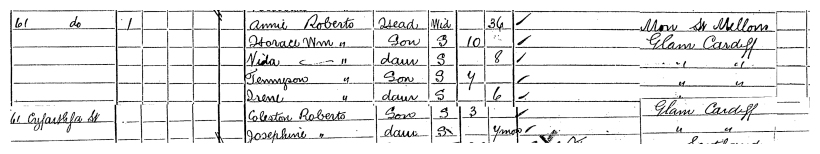 61 do 1 Annie Roberts Head Wid 36 Mon St Mellons
Horace Wm " Son S 10 Glam Cardiff
Vida " daur S 8 " "
Tennyson " Son S 4 " "
Irene " daur S 6
61 Cyfarthfa St Coleston Roberts Son S 3 Glam Cardiff
Josephine " daur S 4 mos " "